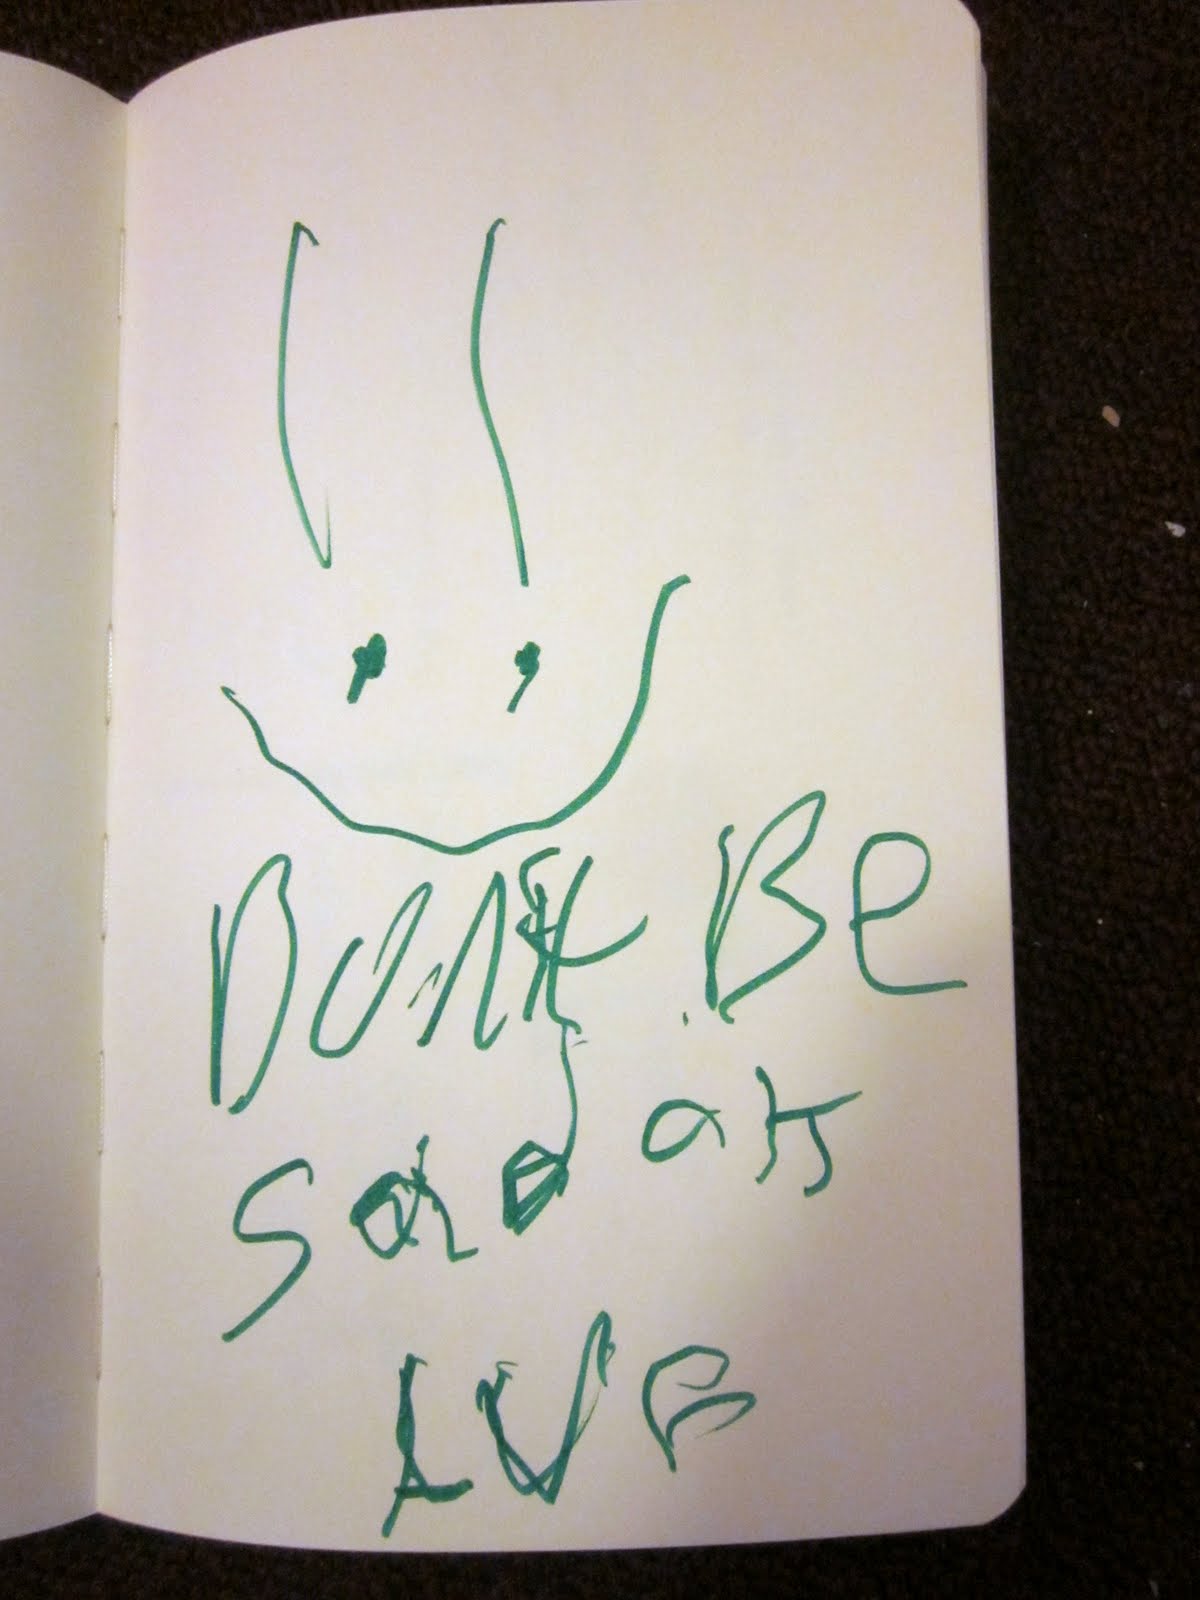 DONt Be
SAd at
LUB